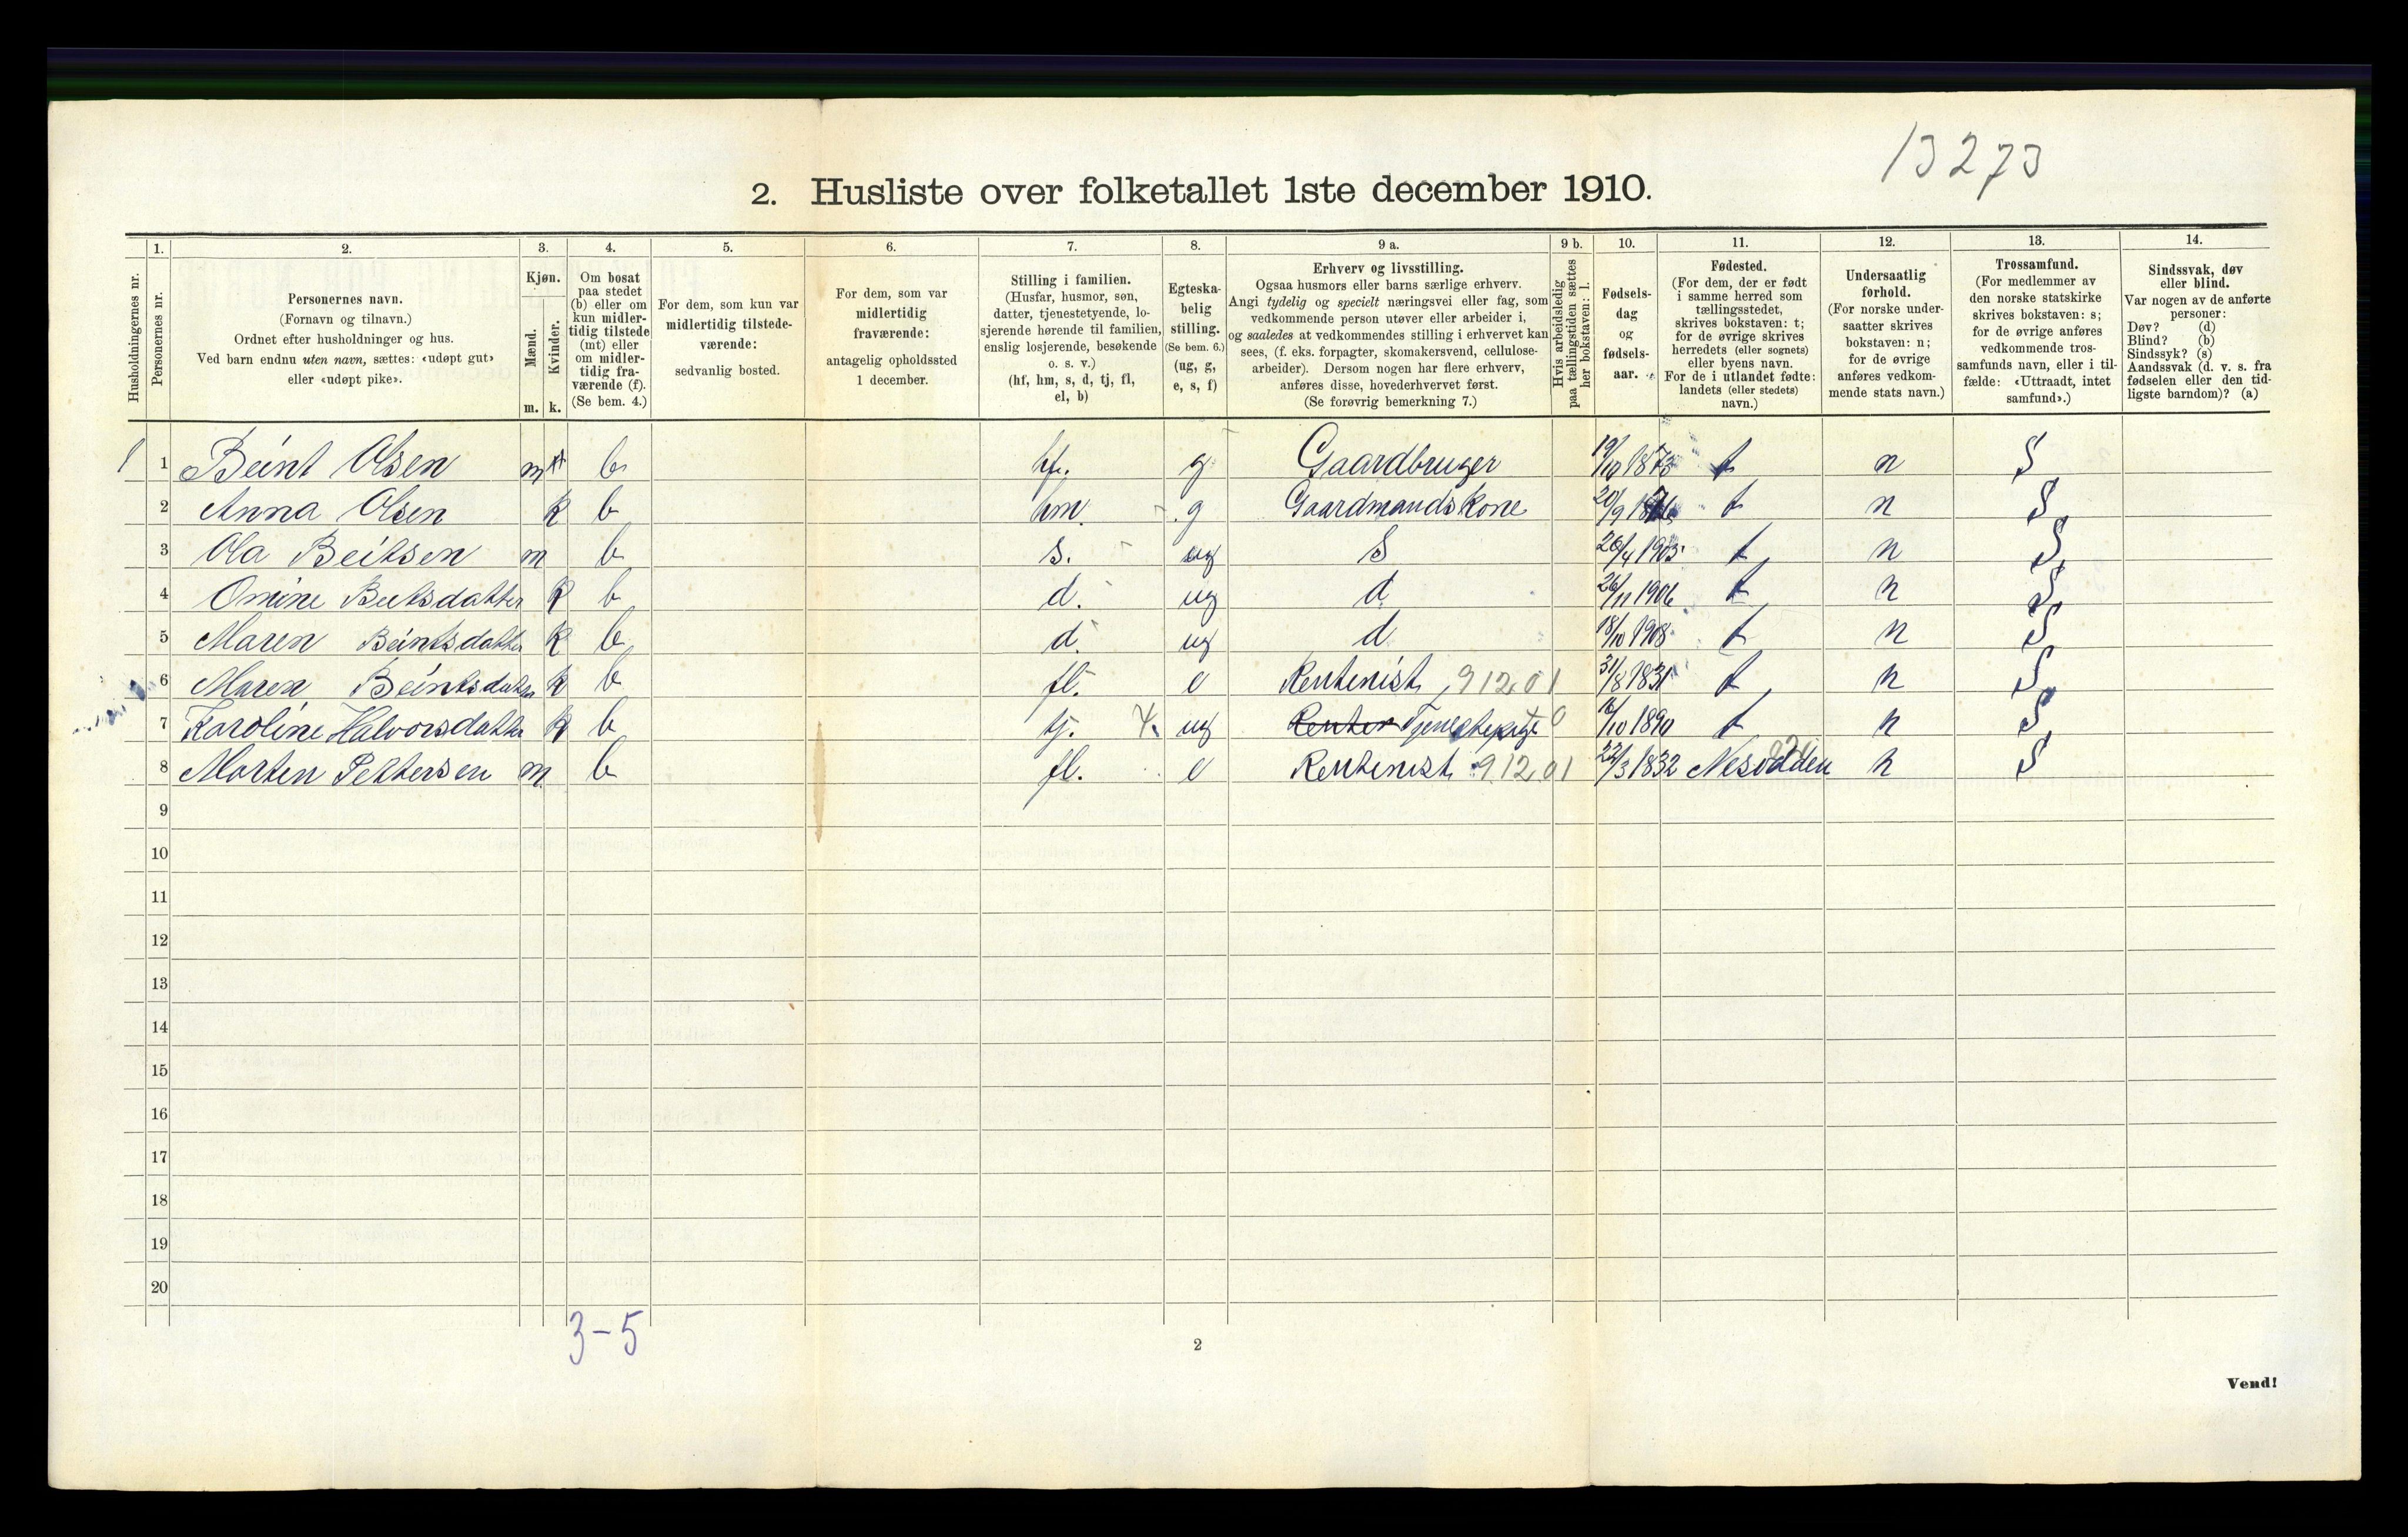 13273
2. Husliste over folketallet 1ste december 1910.
Husholdningernes nr.
1.
Personernes nr.
2.
Personernes navn.
(Fornavn og tilnavn.)
Ordnet efter husholdninger og hus.
Ved barn endnu uten navn, sættes: «udøpt gut»
eller «udøpt pike».
3.
Kjøn.
Mænd.
Kvinder.
m. k.
4.
Om bosat
paa stedet
(b) eller om
kun midler-
tidig tilstede
(mt) eller
om midler-
tidig fra-
værende (f).
(Se bem. 4.)
5.
For dem, som kun var
midlertidig tilstede-
værende:
sedvanlig bosted.
6.
For dem, som var
midlertidig
fraværende:
antagelig opholdssted
1 december.
7.
Stilling i familien.
(Husfar, husmor, søn,
datter, tjenestetyende, lo-
sjerende hørende til familien,
enslig losjerende, besøkende
o. s. v.)
(hf, hm, s, d, tj, fl,
el, b)
8.
Egteska-
belig
stilling.
(Se bem. 6.)
(ug, g,
e, s, f)
9 a.
Erhverv og livsstilling.
Ogsaa husmors eller barns særlige erhverv.
Angi tydelig og specielt næringsvei eller fag, som
vedkommende person utøver eller arbeider i,
og saaledes at vedkommendes stilling i erhvervet kan
sees, (f. eks. forpagter, skomakersvend, cellulose-
arbeider). Dersom nogen har flere erhverv,
anføres disse, hovederhvervet først.
(Se forøvrig bemerkning 7.)
9 b.
Hvis arbeidsledig
paa tællingstiden sættes
her bokstaven: l.
10.
Fødsels-
dag
og
fødsels-
aar.
11.
Fødested.
(For dem, der er født
i samme herred som
tællingsstedet,
skrives bokstaven: t;
for de øvrige skrives
herredets (eller sognets)
eller byens navn.
For de i utlandet fødte:
landets (eller stedets)
navn.)
12.
Undersaatlig
forhold.
(For norske under-
saatter skrives
bokstaven: n;
for de øvrige
anføres vedkom-
mende stats navn.)
13.
Trossamfund.
(For medlemmer av
den norske statskirke
skrives bokstaven: s;
for de øvrige anføres
vedkommende tros-
samfunds navn, eller i til-
fælde: «Uttraadt, intet
samfund».)
14.
Sindssvak, døv
eller blind.
Var nogen av de anførte
personer:
Døv? (d)
Blind? (b)
Sindssyk? (s)
Aandssvak (d. v. s. fra
fødselen eller den tid-
ligste barndom)? (a)
1 1 Beint Olsen m b hf. g Gaardbruger 19/10 1873 t n S
2 Anna Olsen k b hm g Gaardmandskone 20/9 t n S
3 Ola Beitsen m b s. ug S 26/4 1903 t n S
4 Omine Beitsdatter k b d. ug d 26/11 1906 t n S
5 Maren Beintsdatter k b d. ug d 18/10 1908 t n S
6 Maren Beintsdatter k b fl. e Rentenist 91201 31/8 1831 t n S
7 Karoline Halvorsdatter k b tj. ug Renter Tjenestepige 16/10 1890 t n S
8 Morten Pettersen m b fl. e Rentenist 91201 22/3 1832 Nesodden n S
9
10
11
12
13
14
15
16
17
18
19
20
3-5
2
Vend!